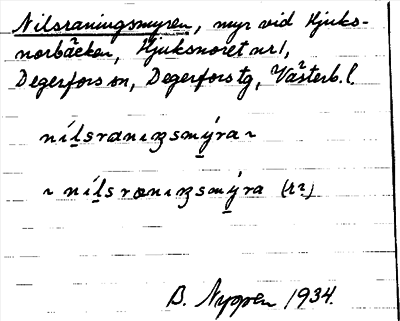 Nilsraningsmyren, myr vid Hjuks-
norbäcken, Hjuksnoret nr 1,
Degerfors sn, Degerfors tg, Västerb. l.
nílsranıŋsmýra ~
~ nílsranıŋsmýra
B. Nygren 1934.